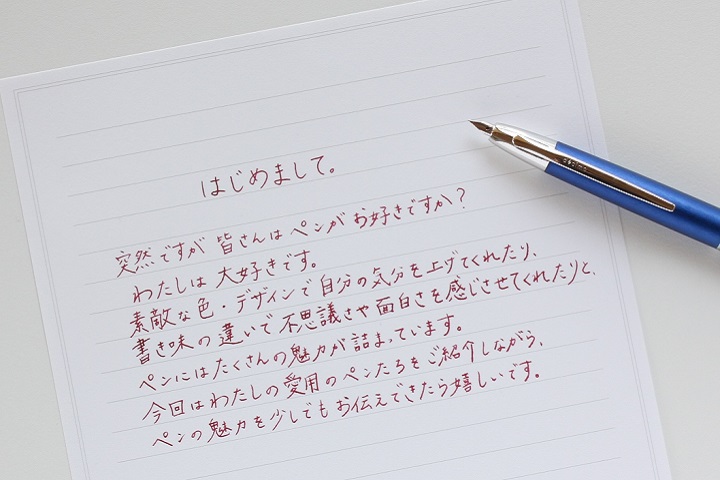 はじめまして。
突然ですが 皆さんは ペンが お好きですか?
わたしは 大好きです。
素敵な色・デザインで 自分の気分を上げてくれたり、
書き味の違いで 不思議さや面白さを感じさせてくれたりと、
ペンにはたくさんの魅力が詰まっています。
今回はわたしの愛用のペンたちをご紹介しながら、
ペンの魅力を少しでもお伝えできたら嬉しいです。